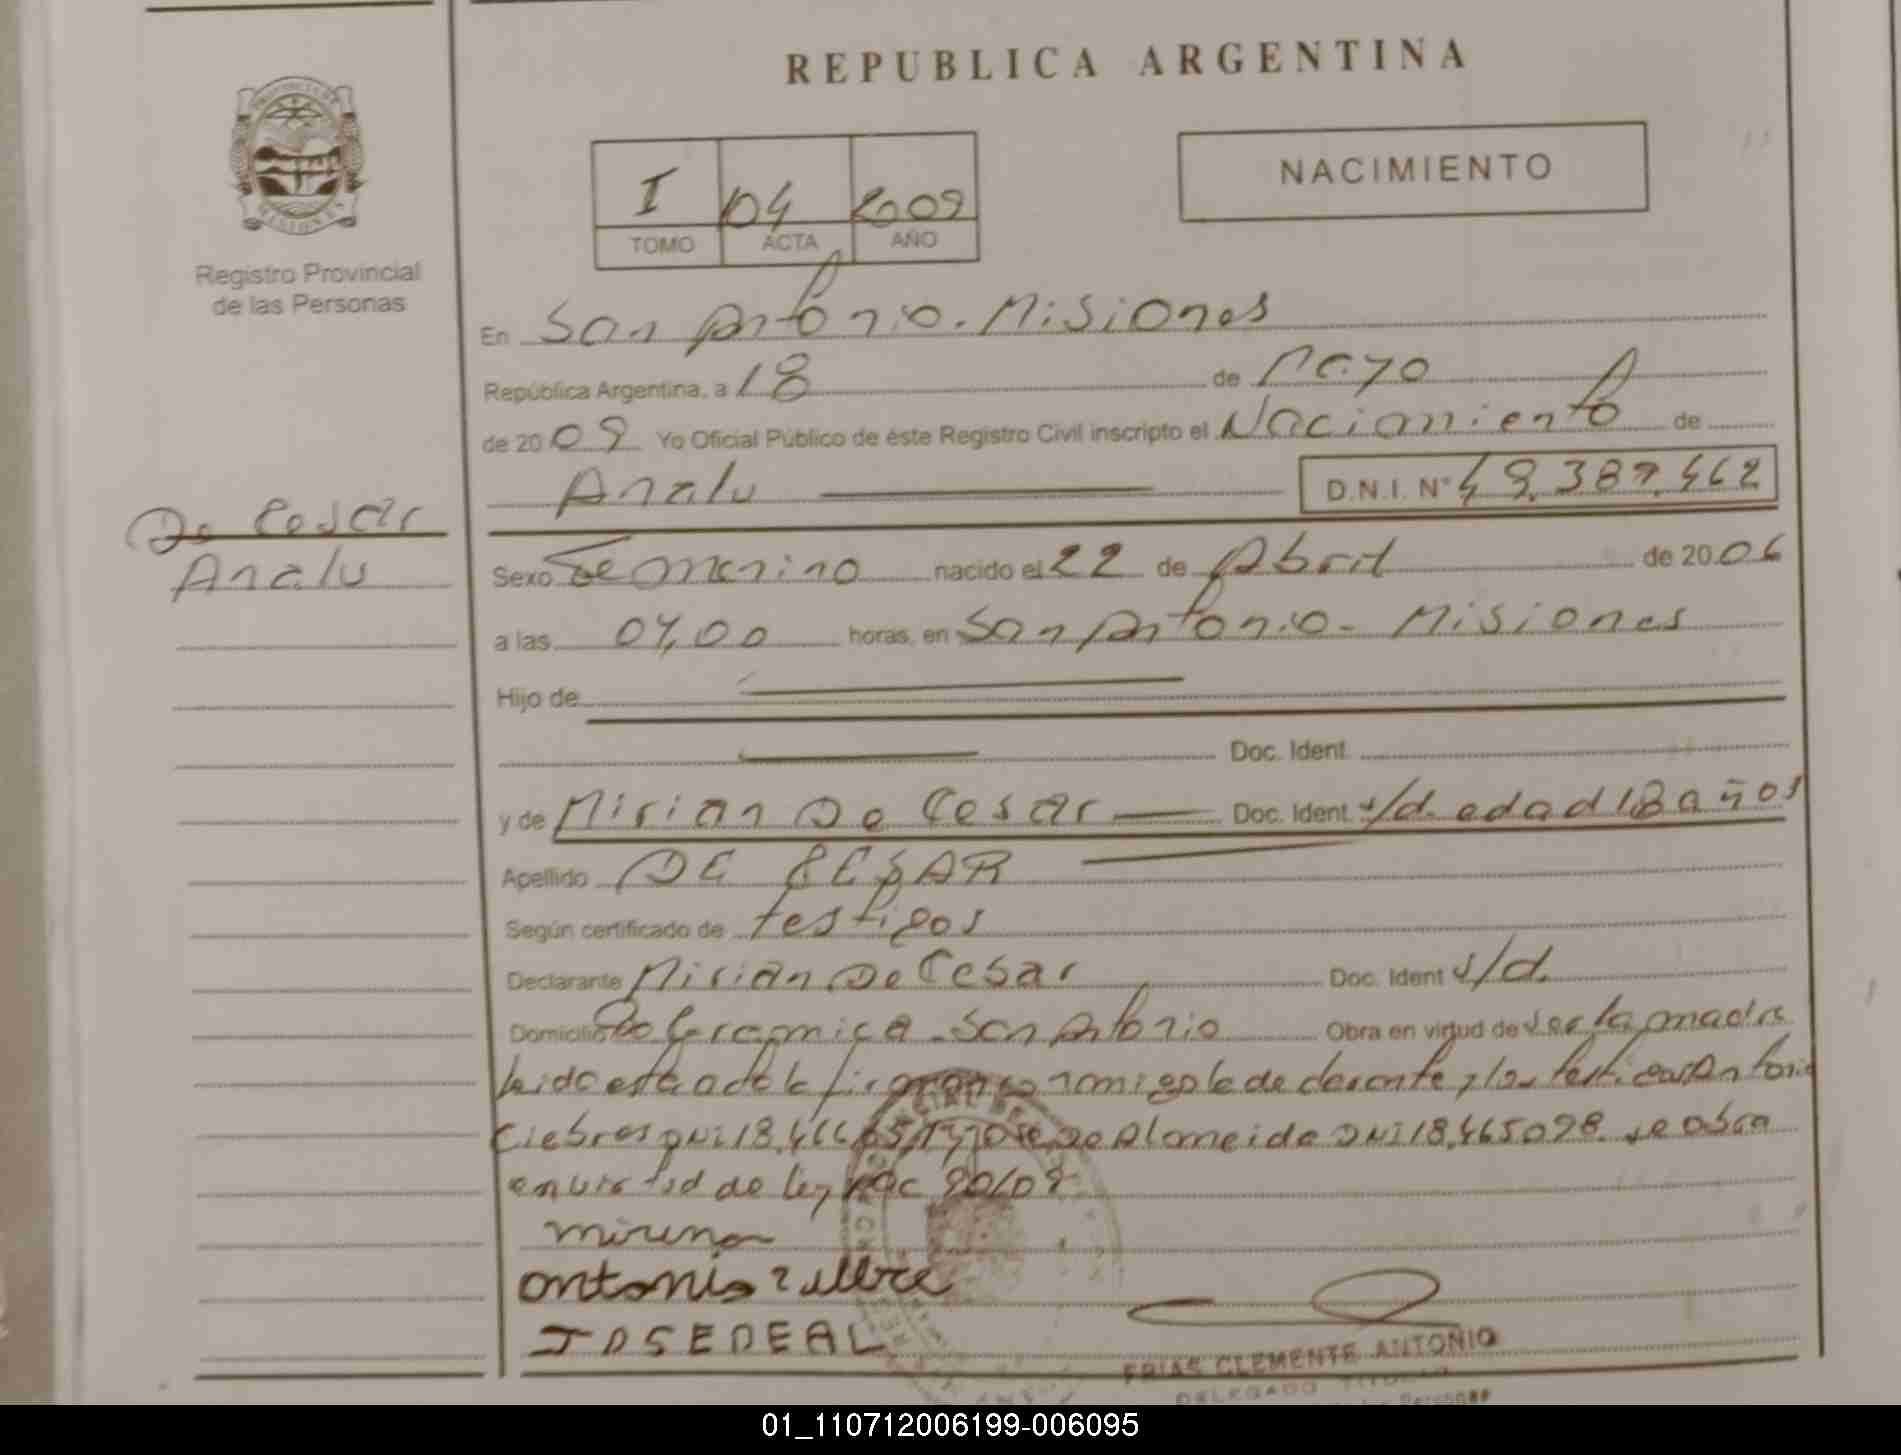 REPUBLICA ARGENTINA
I 04 2009
TOMO ACTA AÑO
NACIMIENTO
Registro Provincial
de las Personas
En San Antonio. Misiones
República Argentina, a 18 de Mayo
de 2009 Yo Oficial Público de éste Registro Civil inscripto el Nacimiento de
Analu D.N.I. N° 49.387.462
De Cesar
Analu
Sexo Femenino nacido el 22 de Abril de 2006
a las 04,00 horas, en San Antonio - Misiones
Hijo de
Doc. Ident.
y de Mirian De Cesar Doc. Ident. s/d. edad 18 años
Apellido DE CESAR
Según certificado de testigos
Declarante Mirian De Cesar Doc. Ident s/d.
Domicilio Ceramica - San Antonio Obra en virtud de ser la madre
leida esta acta la firman conmigo la declarante y los testigos Antonio
DNI 18.466 Jose De Almeida DNI 18.465098. se obra
en virtud de ley nac 90/09
antonio
JOSEDEAL
FRIAS CLEMENTE ANTONIO
DELEGADO TITULAR
01_110712006199-006095